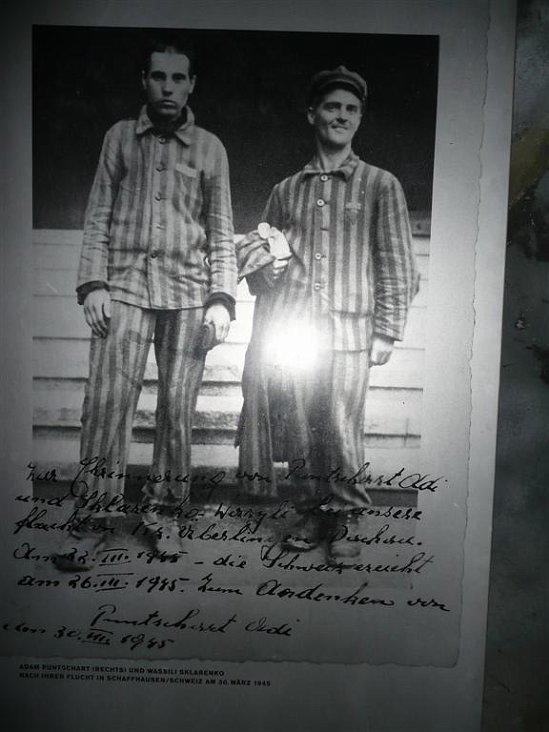 Zur Erinnerung von Puntschart Adi
und Sklarenko Wasyli an unsere
flucht v. Kz. Überlingen Dachau.
Am 22. III. 1945 – die Schweiz erreicht
am 26. III. 1945. Zum Andenken von
Puntschart Adi
den 30. III. 1945
ADAM PUNTSCHART (RECHTS) UND WASSILI SKLARENKO
NACH IHRER FLUCHT IN SCHAFFHAUSEN/SCHWEIZ AM 30. MÄRZ 1945